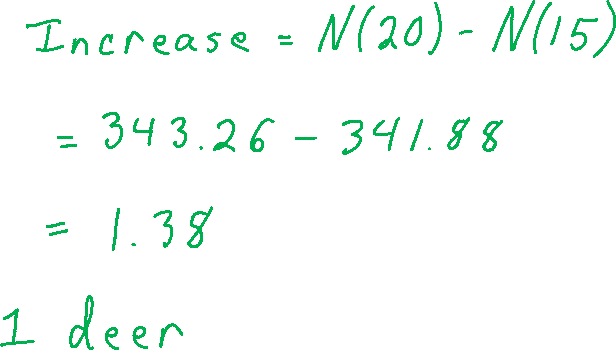 Increase = N(20) - N(15)
= 343.26 - 341.88
= 1.38
1 deer